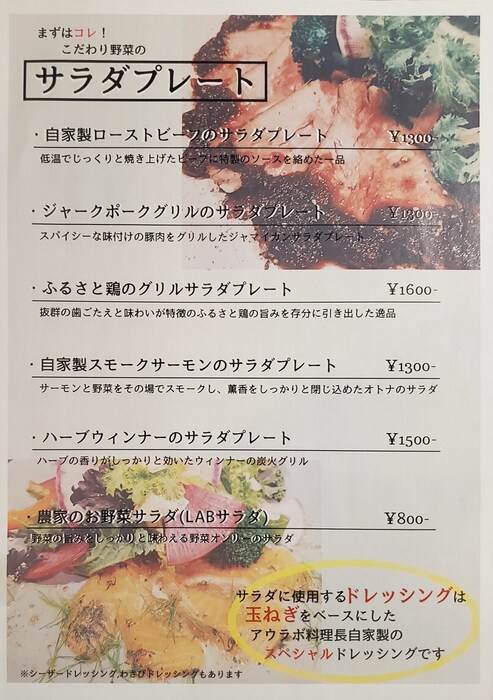 まずはコレ！
こだわり野菜の
サラダプレート
・自家製ローストビーフのサラダプレート ¥1300-
低温でじっくりと焼き上げたビーフに特製のソースを絡めた一品
・ジャークポークグリルのサラダプレート ¥1300-
スパイシーな味付けの豚肉をグリルしたジャマイカンサラダプレート
・ふるさと鶏のグリルサラダプレート ¥1600-
抜群の歯ごたえと味わいが特徴のふるさと鶏の旨みを存分に引き出した逸品
・自家製スモークサーモンのサラダプレート ¥1300-
サーモンと野菜をその場でスモークし、薫香をしっかりと閉じ込めたオトナのサラダ
・ハーブウィンナーのサラダプレート ¥1500-
ハーブの香りがしっかりと効いたウィンナーの炭火グリル
・農家のお野菜サラダ(LABサラダ) ¥800-
野菜の旨みをしっかりと味わえる野菜オンリーのサラダ
サラダに使用するドレッシングは
玉ねぎをベースにした
アウラボ料理長自家製の
スペシャルドレッシングです
※シーザードレッシング,わさびドレッシングもあります